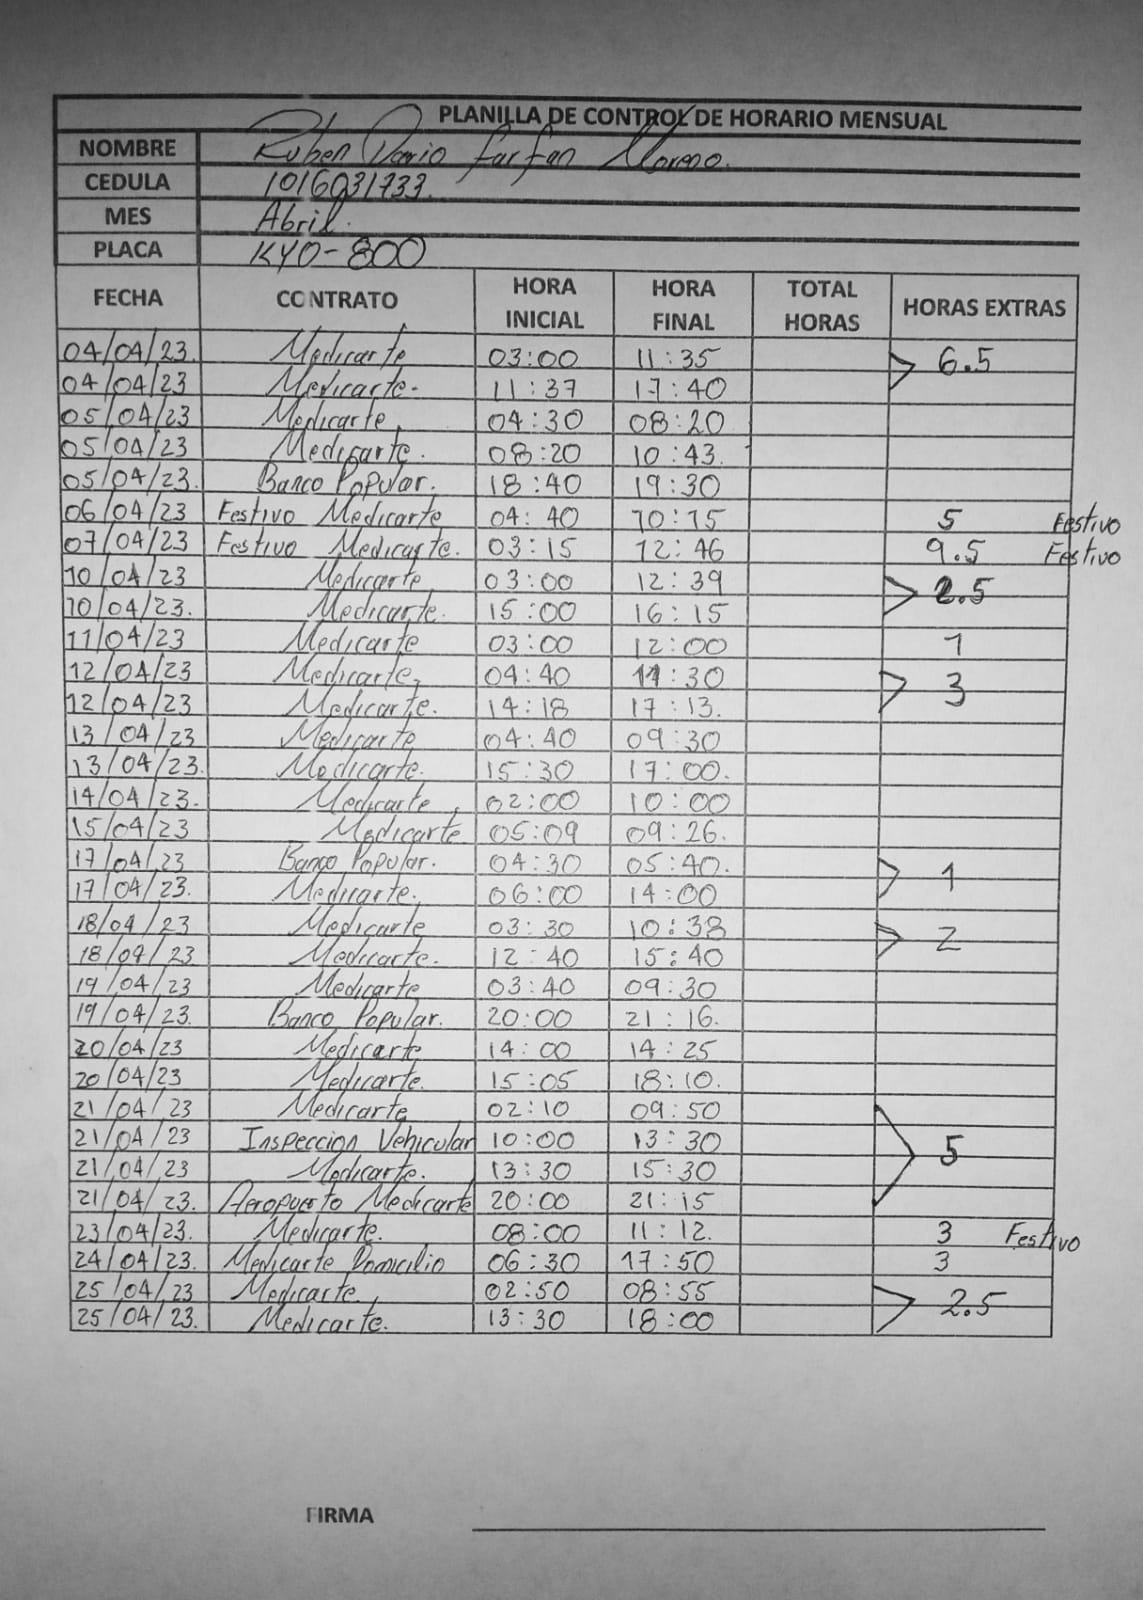 PLANILLA DE CONTROL DE HORARIO MENSUAL
NOMBRE Ruben Dario Farfan Moreno.
CEDULA 1016031733.
MES Abril.
PLACA KYO-800
FECHA CONTRATO HORA INICIAL HORA FINAL TOTAL HORAS HORAS EXTRAS
04/04/23. Medicarte 03:00 11:35 > 6.5
04/04/23 Medicarte. 11:37 17:40
05/04/23 Medicarte 04:30 08:20
05/04/23 Medicarte. 08:20 10:43.
05/04/23. Banco Popular. 18:40 19:30
06/04/23 Festivo Medicarte 04:40 10:15 5 Festivo
07/04/23 Festivo Medicarte. 03:15 12:46 9.5 Festivo
10/04/23 Medicarte 03:00 12:39 > 2.5
10/04/23. Medicarte. 15:00 16:15
11/04/23 Medicarte 03:00 12:00 1
12/04/23 Medicarte, 04:40 11:30 > 3
12/04/23 Medicarte. 14:18 17:13.
13/04/23 Medicarte 04:40 09:30
13/04/23. Medicarte. 15:30 17:00.
14/04/23. Medicarte, 02:00 10:00
15/04/23 Medicarte 05:09 09:26.
17/04/23 Banco Popular. 04:30 05:40. > 1
17/04/23. Medicarte. 06:00 14:00
18/04/23 Medicarte 03:30 10:38 > 2
18/04/23 Medicarte. 12:40 15:40
19/04/23 Medicarte 03:40 09:30
19/04/23. Banco Popular. 20:00 21:16.
20/04/23 Medicarte 14:00 14:25
20/04/23 Medicarte. 15:05 18:10.
21/04/23 Medicarte 02:10 09:50 > 5
21/04/23 Inspeccion Vehicular 10:00 13:30
21/04/23 Medicarte. 13:30 15:30
21/04/23. Aeropuerto Medicarte 20:00 21:15
23/04/23. Medicarte. 08:00 11:12. 3 Festivo
24/04/23. Medicarte Domicilio 06:30 17:50 3
25/04/23 Medicarte, 02:50 08:55 > 2.5
25/04/23. Medicarte. 13:30 18:00
FIRMA